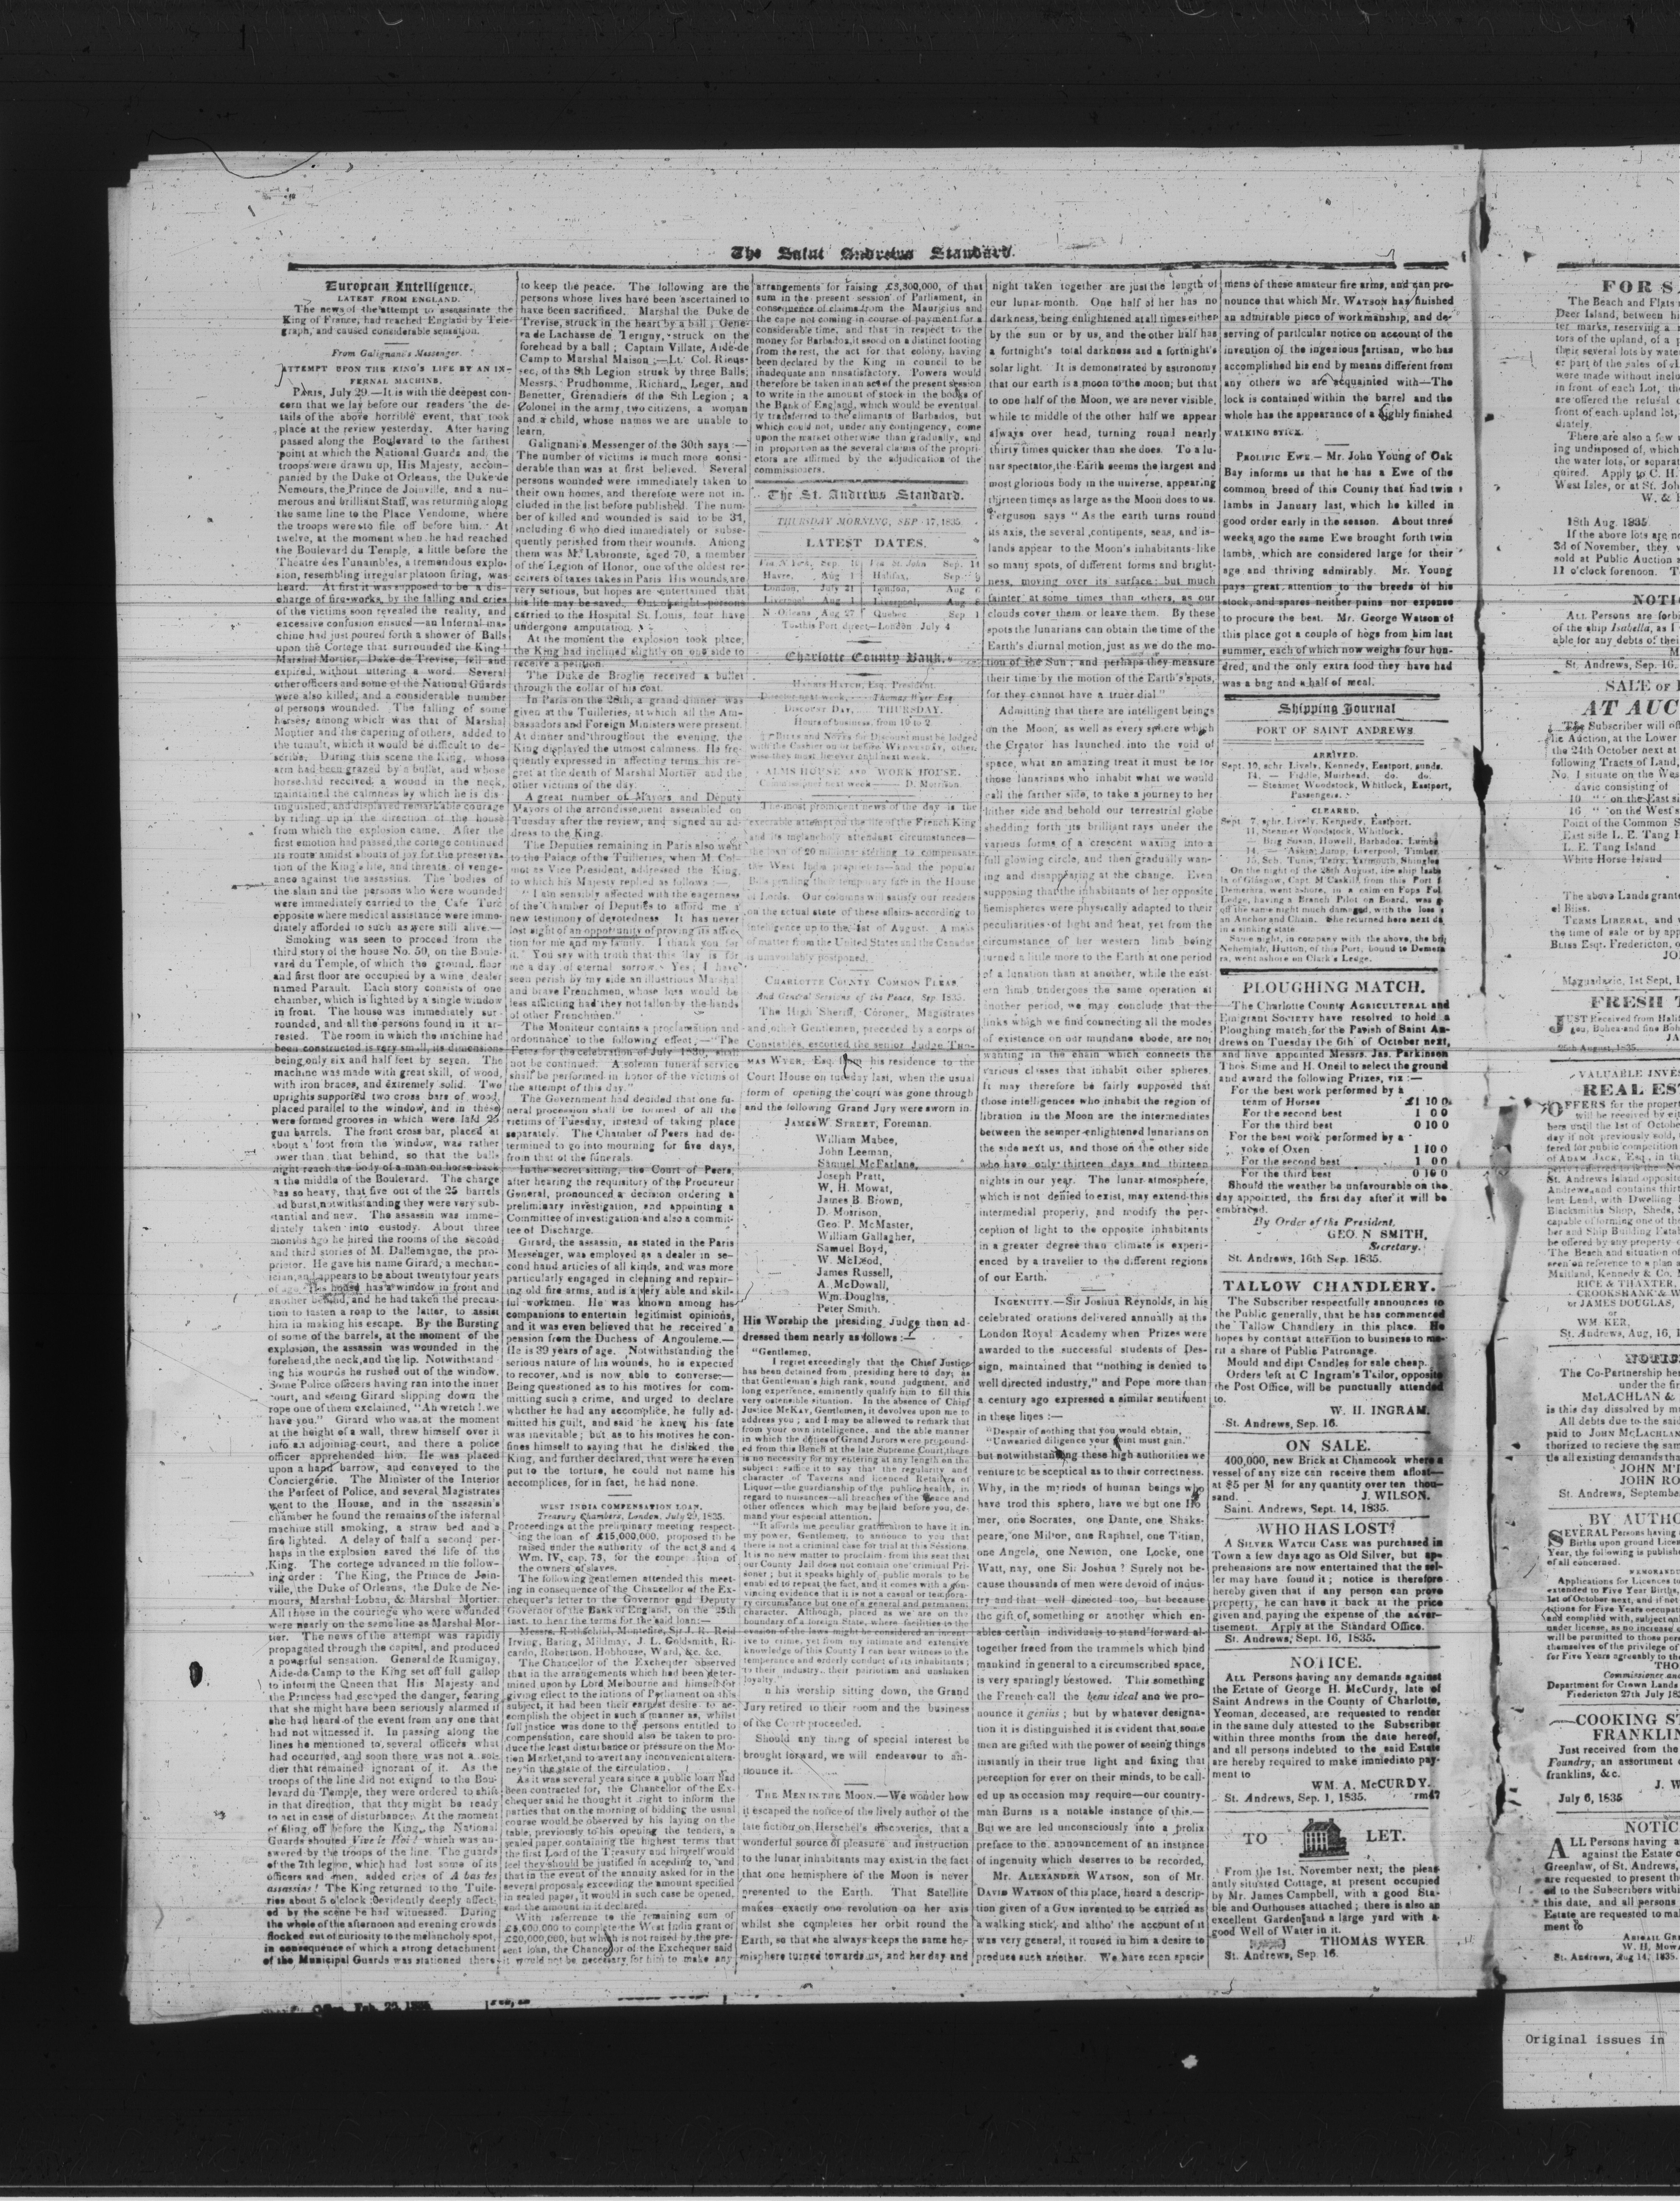 The Saint Andrews Standard.
European Intelligence.
LATEST FROM ENGLAND.
The news of the attempt to assassinate the
King of France, had reached England by Tele-
graph, and caused considerable sensation.
From Galignani's Messenger.
ATTEMPT UPON THE KING'S LIFE BY AN IN-
FERNAL MACHINE.
PARIS, July 29.—It is with the deepest con-
cern that we lay before our readers the de-
tails of the above horrible event, that took
place at the review yesterday. After having
passed along the Boulevard to the farthest
point at which the National Guards and the
troops were drawn up, His Majesty, accom-
panied by the Duke of Orleans, the Duke de
Nemours, the Prince de Joinville, and a nu-
merous and brilliant Staff, was returning along
the same line to the Place Vendome, where
the troops were to file off before him. At
twelve, at the moment when he had reached
the Boulevard du Temple, a little before the
Theatre des Funambles, a tremendous explo-
sion, resembling irregular platoon firing, was
heard. At first it was supposed to be a dis-
charge of fire-works, by the falling and cries
of the victims soon revealed the reality, and
excessive confusion ensued—an Infernal ma-
chine had just poured forth a shower of Balls
upon the Cortege that surrounded the King!
Marshal Mortier, Duke de Trevise, fell and
expired, without uttering a word. Several
other officers and some of the National Guards
were also killed, and a considerable number
of persons wounded. The falling of some
horses, among which was that of Marshal
Moptier and the capering of others, added to
the tumult, which it would be difficult to de-
scribe. During this scene the King, whose
arm had been grazed by a bullet, and whose
horse had received a wound in the neck,
maintained the calmness by which he is dis-
tinguished, and displayed remarkable courage
by riding up in the direction of the house
from which the explosion came. After the
first emotion had passed, the cortege continued
its route amidst shouts of joy for the preserva-
tion of the King's life, and threats of venge-
ance against the assassins. The bodies of
the slain and the persons who were wounded
were immediately carried to the Cafe Turc
opposite where medical assistance were imme-
diately afforded to such as were still alive.—
Smoking was seen to proceed from the
third story of the house No. 50, on the Boule-
vard du Temple, of which the ground floor
and first floor are occupied by a wine dealer
named Parault. Each story consists of one
chamber, which is lighted by a single window
in front. The house was immediately sur-
rounded, and all the persons found in it ar-
rested. The room in which the machine had
been constructed is very small, its dimensions
being only six and half feet by seven. The
machine was made with great skill, of wood,
with iron braces, and extremely solid. Two
uprights supported two cross bars of wood,
placed parallel to the window, and in these
were formed grooves in which were laid 25
gun barrels. The front cross bar, placed at
about a foot from the window, was rather
lower than that behind, so that the balls
might reach the body of a man on horse back
in the middle of the Boulevard. The charge
was so heavy, that five out of the 25 barrels
had burst, notwithstanding they were very sub-
stantial and new. The assassin was imme-
diately taken into custody. About three
months ago he hired the rooms of the second
and third stories of M. Dallemagne, the pro-
prietor. He gave his name Girard, a mechan-
ician, and appears to be about twenty four years
of age. This house has a window in front and
another behind, and he had taken the precau-
tion to fasten a roap to the latter, to assist
him in making his escape. By the Bursting
of some of the barrels, at the moment of the
explosion, the assassin was wounded in the
forehead, the neck, and the lip. Notwithstand
ing his wounds he rushed out of the window.
Some Police officers having ran into the inner
court, and seeing Girard slipping down the
rope one of them exclaimed, "Ah wretch! we
have you." Girard who was at the moment
at the height of a wall, threw himself over it
info an adjoining-court, and there a police
officer apprehended him. He was placed
upon a hand barrow, and conveyed to the
Conciergerie. The Minister of the Interior
the Perfect of Police, and several Magistrates
went to the House, and in the assassin's
chamber he found the remains of the infernal
machine still smoking, a straw bed and a
fire lighted. A delay of half a second per-
haps in the explosion saved the life of the
King. The cortege advanced in the follow-
ing order: The King, the Prince de Join-
ville, the Duke of Orleans, the Duke de Ne-
mours, Marshal Lobau, & Marshal Mortier.
All those in the courtege who were wounded
were nearly on the same line as Marshal Mor-
tier. The news of the attempt was rapidly
propagated through the capital, and produced
a powerful sensation. General de Rumigny,
Aide-de-Camp to the King set off full gallop
to inform the Queen that His Majesty and
the Princess had escaped the danger, fearing
that she might have been seriously alarmed if
she had heard of the event from any one that
had not witnessed it. In passing along the
lines he mentioned to several officers what
had occurred, and soon there was not a sol-
dier that remained ignorant of it. As the
troops of the line did not extend to the Bou-
levard du Temple, they were ordered to shift
in that direction, that they might be ready
to act in case of disturbance. At the moment
of filing off before the King, the National
Guards shouted Vive le Roi! which was an-
swered by the troops of the line. The guards
of the 7th legion, which had lost some of its
officers and men, added cries of A bas les
assassins! The King returned to the Tuile-
ries about 5 o'clock evidently deeply affect-
ed by the scene he had witnessed. During
the whole of the afternoon and evening crowds
flocked out of curiosity to the melancholy spot,
in consequence of which a strong detachment
of the Municipal Guards was stationed there
to keep the peace. The following are the
persons whose lives have been ascertained to
have been sacrificed. Marshal the Duke de
Trevise, struck in the heart by a ball; Gene-
ra de Lachasse de Verigny, struck on the
forehead by a ball; Captain Villate, Aide-de
Camp to Marshal Maison;—Lt. Col. Rieus-
sec, of the 8th Legion struck by three Balls;
Messrs. Prudhomme, Richard, Leger, and
Benetter, Grenadiers of the 8th Legion; a
Colonel in the army, two citizens, a woman
and a child, whose names we are unable to
learn.
Galignani's Messenger of the 30th says:—
The number of victims is much more consi-
derable than was at first believed. Several
persons wounded were immediately taken to
their own homes, and therefore were not in-
cluded in the list before published. The num-
ber of killed and wounded is said to be 34,
including 6 who died immediately or subse-
quently perished from their wounds. Among
them was M. Labronste, aged 70, a member
of the Legion of Honor, one of the oldest re-
ceivers of taxes takes in Paris. His wounds are
very serious, but hopes are entertained that
his life may be saved. Out of eight persons
carried to the Hospital St. Louis, four have
undergone amputation.
At the moment the explosion took place,
the King had inclined slightly on one side to
receive a petition.
The Duke de Broglie received a bullet
through the collar of his coat.
In Paris on the 28th, a grand dinner was
given at the Tuilleries, at which all the Am-
bassadors and Foreign Ministers were present.
At dinner and throughout the evening, the
King displayed the utmost calmness. He fre-
quently expressed in affecting terms his re-
gret at the death of Marshal Mortier and the
other victims of the day.
A great number of Mayors and Deputy
Mayors of the arrondissement assembled on
Tuesday after the review, and signed an ad-
dress to the King.
The Deputies remaining in Paris also went
to the Palace of the Tuilleries, when M. Cal-
mot as Vice President, addressed the King,
to which his Majesty replied as follows:—
"I am sensibly affected with the eagerness
of the Chamber of Deputies to afford me a
new testimony of devotedness. It has never
lost sight of an opportunity of proving its affec-
tion for me and my family. I thank you for
it. You sey with truth that this day is for
me a day of eternal sorrow. Yes; I have
seen perish by my side an illustrious Marshal
and brave Frenchmen, whose loss would be
less afflicting had they not fallen by the hands
of other Frenchmen."
The Moniteur contains a proclamation and
ordonnance to the following effect;—"The
Fetes for the celebration of July 1830, shall
not be continued. A solemn funeral service
shall be performed in honor of the victims of
the attempt of this day."
The Government had decided that one fu-
neral procession shall be formed of all the
victims of Tuesday, instead of taking place
separately. The Chamber of Peers had de-
termined to go into mourning for five days,
from that of the funerals.
In the secret sitting, the Court of Peers,
after hearing the requisitory of the Procureur
General, pronounced a decision ordering a
preliminary investigation, and appointing a
Committee of investigation and also a commit-
tee of Discharge.
Girard, the assassin, as stated in the Paris
Messenger, was employed as a dealer in se-
cond hand articles of all kinds, and was more
particularly engaged in cleaning and repair-
ing old fire arms, and is a very able and skil-
ful workmen. He was known among his
companions to entertein legitimist opinions,
and it was even believed that he received a
pension from the Duchess of Angouleme.—
He is 39 years of age. Notwithstanding the
serious nature of his wounds, he is expected
to recover, and is now able to converse.—
Being questioned as to his motives for com-
mitting such a crime, and urged to declare
whether he had any accomplice, he fully ad-
mitted his guilt, and said he knew his fate
was inevitable; but as to his motives he con-
fines himself to saying that he disliked the
King, and further declared, that were he even
put to the torture, he could not name his
accomplices, for in fact, he had none.
WEST INDIA COMPENSATION LOAN.
Treasury Chambers, London, July 29, 1835.
Proceedings at the preliminary meeting respect-
ing the loan of £15,000,000, proposed to be
raised under the authority of the act 3 and 4
Wm. IV, cap. 73, for the compensation of
the owners of slaves.
The following gentlemen attended this meet-
ing in consequence of the Chancellor of the Ex-
chequer's letter to the Governor and Deputy
Governor of the Bank of England, on the 25th
inst. to hear the terms for the said loan:—
Messrs. Rothschild, Montefire, Sir J. R. Reid
Irving, Baring, Mildmay, J. L. Goldsmith, Ri-
cardo, Robertson, Hobhouse, Ward, &c. &c.
The Chancellor of the Exchequer observed
that in the arrangements which had been deter-
mined upon by Lord Melbourne and himself for
giving effect to the intions of Parliament on this
subject, it had been their earnest desire to ac-
complish the object in such a manner as, whilst
full justice was done to the persons entitled to
compensation, care should also be taken to pro-
duce the least disturbance or pressure on the Mo-
tion Market, and to avert any inconvenient altera-
ney in the state of the circulation.
As it was several years since a public loan had
been contracted for, the Chancellor of the Ex-
chequer said he thought it right to inform the
parties that on the morning of bidding the usual
course would be observed by his laying on the
table, previously to his opening the tenders, a
sealed paper containing the highest terms that
the first Lord of the Treasury and himself would
feel they should be justified in acceding to, and
that in the event of the annuity asked for in the
several proposals exceeding the amount specified
in sealed paper, it would in such case be opened,
and the amount in it declared.
With refererence to the remaining sum of
£5,000,000 to complete the West India grant of
£20,000,000, but which is not raised by the pre-
sent loan, the Chancellor of the Exchequer said
it would not be necessary for him to make any
arrangements for raising £3,300,000, of that
sum in the present session of Parliament, in
consequence of claims from the Mauritius and
the cape not coming in course of payment for a
considerable time, and that in respect to the
money for Barbados, it stood on a distinct footing
from the rest, the act for that colony, having
been declared by the King in council to be
inadequate ann unsatisfactory. Powers would
therefore be taken in an act of the present session
to write in the amount of stock in the books of
the Bank of England, which would be eventual-
ly transferred to the claimants of Barbados, but
which could not, under any contingency, come
upon the market otherwise than gradually, and
in proportion as the several claims of the propri-
etors are affirmed by the adjudication of the
commissioners.
The St. Andrews Standard.
THURSDAY MORNING, SEP 17, 1835.
LATEST DATES.
Via N York, Sep. | Via St. John Sep. 14
Havre, Aug 1 | Halifax, Sep
London, July 31 | London, Aug
Liverpool Aug 1 | Liverpool, Aug
N. Orleans, Aug 27 | Quebec Sep 1
To this Port direct—London July 4
Charlotte County Bank.
HARRIS HATCH, Esq. President.
Director next week, Thomas Wyer Esq.
DISCOUNT DAY, THURSDAY.
Hours of business, from 10 to 2.
BILLS and NOTES for Discount must be lodged
with the Cashier on or before WEDNESDAY, other-
wise they must lie over until next week.
ALMS HOUSE AND WORK HOUSE.
Commissioner next week D. Morrison.
The most prominent news of the day is the
execrable attempt on the life of the French King
and its melancholy attendant circumstances—
the loan of 20 millions sterling to compensate
the West India proprietors—and the popular
Bills pending their temporary fate in the House
of Lords. Our columns will satisfy our readers
on the actual state of these affairs according to
Intelligence up to the 1st of August. A mass
of matter from the United States and the Canadas
is unavoidably postponed.
CHARLOTTE COUNTY COMMON PLEAS
And General Sessions of the Peace, Sep 1835.
The High Sheriff, Coroner, Magistrates
and other Gentlemen, preceded by a corps of
Constables, escorted the senior Judge THO-
MAS WYER, Esq. from his residence to the
Court House on tuesday last, when the usual
form of opening the court was gone through
and the following Grand Jury were sworn in
JAMES W. STREET, Foreman.
William Mabee,
John Leeman,
Samuel McFarlane,
Joseph Pratt,
W. H. Mowat,
James B. Brown,
D. Morrison,
Geo. P. McMaster,
William Gallagher,
Samuel Boyd,
W. McLeod,
James Russell,
A. McDowall,
Wm. Douglas,
Peter Smith.
His Worship the presiding Judge then ad-
dressed them nearly as follows:—
"Gentlemen,
I regret exceedingly that the Chief Justice
has been detained from presiding here to day; as
that Gentleman's high rank, sound judgment, and
long experience, eminently qualify him to fill this
very ostensible situation. In the absence of Chief
Justice McKAY, Gentlemen, it devolves upon me to
address you; and I may be allowed to remark that
from your own intelligence, and the able manner
in which the duties of Grand Jurors were propound-
ed from this Bench at the late Supreme Court, there
is no necessity for my entering at any length on the
subject: suffice it to say that the regularity and
character of Taverns and licenced Retailers of
Liquor—the guardianship of the public health, in
regard to nuisances—all breaches of the Peace and
other offences which may be laid before you, de-
mand your especial attention.
"It affords me peculiar gratification to have it in
my power, Gentlemen, to annouce to you that
there is not a criminal case for trial at this Sessions.
It is no new matter to proclaim from this seat that
our County Jail does not contain one criminal Pri-
soner; but it speaks highly of public morals to be
enabled to repeat the fact, and it comes with a con-
vincing evidence that it is not a casual or tempora-
ry circumstance but one of a general and permanent
character. Although, placed as we are on the
boundary of a foreign State, where facilities to the
evasion of the laws might be considered an incent-
ive to crime, yet from my intimate and extensive
knowledge of this County I can bear witness to the
temperance and orderly conduct of its inhabitants;
to their industry, their patriotism and unshaken
loyalty."
n his worship sitting down, the Grand
Jury retired to their room and the business
of the Court proceeded.
Should any thing of special interest be
brought forward, we will endeavour to an-
nounce it.
THE MEN IN THE MOON.—We wonder how
it escaped the notice of the lively author of the
late fiction on Herschel's discoveries, that a
wonderful source of pleasure and instruction
to the lunar inhabitants may exist in the fact
that one hemisphere of the Moon is never
presented to the Earth. That Satellite
makes exactly one revolution on her axis
whilst she completes her orbit round the
Earth, so that she always keeps the same he-
misphere turned towards us, and her day and
night taken together are just the length of
our lunar month. One half of her has no
darkness, being enlightened at all times either
by the sun or by us, and the other half has
a fortnight's total darkness and a fortnight's
solar light. It is demonstrated by astronomy
that our earth is a moon to the moon; but that
to one half of the Moon, we are never visible,
while to middle of the other half we appear
always over head, turning round nearly
thirty times quicker than she does. To a lu-
nar spectator, the Earth seems the largest and
most glorious body in the universe, appearing
thirteen times as large as the Moon does to us.
Ferguson says "As the earth turns round
its axis, the several continents, seas, and is-
lands appear to the Moon's inhabitants like
so many spots, of different forms and bright-
ness, moving over its surface: but much
fainter at some times than others, as our
clouds cover them or leave them. By these
spots the lunarians can obtain the time of the
Earth's diurnal motion, just as we do the mo-
tion of the Sun; and perhaps they measure
their time by the motion of the Earth's spots,
for they cannot have a truer dial."
Admitting that there are intelligent beings
on the Moon, as well as every sphere which
the Creator has launched into the void of
space, what an amazing treat it must be for
those lunarians who inhabit what we would
call the farther side, to take a journey to her
hither side and behold our terrestrial globe
shedding forth its brilliant rays under the
various forms of a crescent waxing into a
full glowing circle, and then gradually wan-
ing and disappearing at the change. Even
supposing that the inhabitants of her opposite
hemispheres were physically adapted to their
peculiarities of light and heat, yet from the
circumstance of her western limb being
turned a little more to the Earth at one period
of a lunation than at another, while the east-
ern limb undergoes the same operation at
another period, we may conclude that the
links which we find connecting all the modes
of existence on our mundane abode, are not
wanting in the chain which connects the
various classes that inhabit other spheres.
It may therefore be fairly supposed that
those intelligences who inhabit the region of
libration in the Moon are the intermediates
between the semper-enlightened lunarians on
the side next us, and those on the other side
who have only thirteen days and thirteen
nights in our year. The lunar atmosphere,
which is not denied to exist, may extend this
intermedial properiy, and modify the per-
ception of light to the opposite inhabitants
in a greater degree than climate is experi-
enced by a traveller to the different regions
of our Earth.
INGENUITY.—Sir Joshua Reynolds, in his
celebrated orations delivered annually at the
London Royal Academy when Prizes were
awarded to the successful students of Des-
sign, maintained that "nothing is denied to
well directed industry," and Pope more than
a century ago expressed a similar sentiment
in these lines:—
"Despair of nothing that you would obtain,
"Unwearied diligence your point must gain."
but notwithstanding these high authorities we
venture to be sceptical as to their correctness.
Why, in the myriods of human beings who
have trod this sphere, have we but one Ho
mer, one Socrates, one Dante, one Shaks-
peare, one Milton, one Raphael, one Titian,
one Angelo, one Newton, one Locke, one
Watt, nay, one Sir Joshua? Surely not be-
cause thousands of men were devoid of indus-
try and that well directed too, but because
the gift of something or another which en-
ables certain individuals to stand forward al-
together freed from the trammels which bind
mankind in general to a circumscribed space,
is very sparingly bestowed. This something
the French call the beau ideal and we pro-
nounce it genius; but by whatever designa-
tion it is distinguished it is evident that some
men are gifted with the power of seeing things
instantly in their true light and fixing that
perception for ever on their minds, to be call-
ed up as occasion may require—our country-
man Burns is a notable instance of this.—
But we are led unconsciously into a prolix
preface to the announcement of an instance
of ingenuity which deserves to be recorded,
Mr. ALEXANDER WATSON, son of Mr.
DAVID WATSON of this place, heard a descrip-
tion given of a GUN invented to be carried as
a walking stick, and altho' the account of it
was very general, it roused in him a desire to
produce such another. We have seen speci-
mens of these amateur fire arms, and can pro-
nounce that which Mr. WATSON has finished
an admirable piece of workmanship, and de-
serving of particular notice on account of the
invention of the ingenious [artisan, who has
accomplished his end by means different from
any others we are acquainted with—The
lock is contained within the barrel and the
whole has the appearance of a highly finished
WALKING STICK.
PROLIFIC EWE.—Mr. John Young of Oak
Bay informs us that he has a Ewe of the
common breed of this County that had twin
lambs in January last, which he killed in
good order early in the season. About three
weeks ago the same Ewe brought forth twin
lambs, which are considered large for their
age and thriving admirably. Mr. Young
pays great attention to the breeds of his
stock, and spares neither pains nor expense
to procure the best. Mr. George Watson of
this place got a couple of hogs from him last
summer, each of which now weighs four hun-
dred, and the only extra food they have had
was a bag and a half of meal.
Shipping Journal
PORT OF SAINT ANDREWS.
ARRIVED.
Sept. 10, schr. Lively, Kennedy, Eastport, sunds.
14. — Fiddle, Muirhead, do. do.
— Steamer Woodstock, Whitlock, Eastport,
Passengers.
CLEARED.
Sept. 7, schr. Lively, Kennedy, Eastport.
11, Steamer Woodstock, Whitlock.
— Brig Susan, Howell, Barbados, Lumb
14, — Askin, Jamp, Liverpool, Timber,
15, Sch. Tunis, Terry, Yarmouth, Shingles
On the night of the 28th August, the ship Isabe
la of Glasgow, Capt. McCaskill, from this Port f
Demerara, went ashore, in a calm on Pops Fol
Ledge, having a Branch Pilot on Board, was g
off the same night much damaged, with the loss
an Anchor and Chain. She returned here next da
in a sinking state.
Same night, in company with the above, the brig
Nehemiah, Hutton, of this Port, bound to Demera
ra, went ashore on Clark's Ledge.
PLOUGHING MATCH.
The Charlotte County AGRICULTERAL and
Emigrant SOCIETY have resolved to hold a
Ploughing match for the Parish of Saint An-
drews on Tuesday the 6th of October next,
and have appointed Messrs. Jas. Parkinson
Thos. Sime and H. Oneil to select the ground
and award the following Prizes, viz:—
For the best work performed by a
team of Horses £1 10 0
For the second best 1 0 0
For the third best 0 10 0
For the best work performed by a
yoke of Oxen 1 10 0
For the second best 1 0 0
For the third best 0 10 0
Should the weather be unfavourable on the
day appointed, the first day after it will be
embraced.
By Order of the President,
GEO. N SMITH,
Secretary.
St. Andrews, 16th Sep. 1835.
TALLOW CHANDLERY.
The Subscriber respectfully announces to
the Public generally, that he has commenced
the Tallow Chandlery in this place. He
hopes by contant attention to business to me-
rit a share of Public Patronage.
Mould and dipt Candles for sale cheap.
Orders left at C Ingram's Tailor, opposite
the Post Office, will be punctually attended
to.
W. H. INGRAM.
St. Andrews, Sep. 16.
ON SALE.
400,000, new Brick at Chamcook where a
vessel of any size can receive them afloat—
at $5 per M for any quantity over ten thou-
sand. J. WILSON.
Saint. Andrews, Sept. 14, 1835.
WHO HAS LOST?
A SILVER WATCH CASE was purchased in
Town a few days ago as Old Silver, but ap-
prehensions are now entertained that the sel-
ler may have found it; notice is therefore
hereby given that if any person can prove
property, he can have it back at the price
given and paying the expense of the adver-
tisement. Apply at the Standard Office.
St. Andrews, Sept. 16, 1835.
NOTICE.
ALL Persons having any demands against
the Estate of George H. McCurdy, late of
Saint Andrews in the County of Charlotte,
Yeoman, deceased, are requested to render
in the same duly attested to the Subscriber
within three months from the date hereof,
and all persons indebted to the said Estate
are hereby required to make immediato pay-
ment to
WM. A. McCURDY.
St. Andrews, Sep. 1, 1835. rm47
TO LET.
From the 1st. November next; the pleas
antly situated Cottage, at present occupied
by Mr. James Campbell, with a good Sta-
ble and Outhouses attached; there is also an
excellent Garden and a large yard with a
good Well of Water in it.
THOMAS WYER
St. Andrews, Sep. 16.
FOR S
The Beach and Flats
Deer Island, between hi
ter marks, reserving a
tors of the upland, of a p
their several lots by wate
er part of the sales of
were made without inclu
in front of each Lot, the
are offered the refusal o
front of each upland lot,
diately.
There are also a few
ing undisposed of, which
the water lots, or separat
quired. Apply to C. H.
West Isles, or at St. Joh
W. &
18th Aug. 1835
If the above lots are no
3d of November, they
sold at Public Auction
11 o'clock forenoon. T
NOTI
ALL Persons are forbi
of the ship Isabella, as I
able for any debts of thei
M
St. Andrews, Sep. 16.
SALE OF
AT AUC
The Subscriber will off
lic Auction, at the Lower
the 24th October next at
following Tracts of Land,
No. 1 situate on the Wes
davic consisting of
10 " on the East si
16 " on the West s
Point of the Common S
East side L. E. Tang
L. E. Tang Island
White Horse Island
The above Lands grante
el Bliss.
TERMS LIBERAL, and
the time of sale or by app
BLISS Esqr. Fredericton, o
JO
Magaudavic, 1st Sept, 1
FRESH T
JUST Received from Hali
gou, Bohea and fine Boh
JA
25th August, 1835.
VALUABLE INVES
REAL EST
OFFERS for the propert
will be received by
bers until the 1st of Octobe
day if not previously sold,
fered for public competition
of ADAM JACK, Esq., in th
St. Andrews Island opposite
Andrews, and contains thirt
lent Land, with Dwelling
Blacksmiths Shop, Sheds,
capable of forming one of th
ber and Ship Building Estab
be offered by any property
The Beach and situation of
seen on reference to a plan a
Maitland, Kennedy & Co.
RICE & THAXTER,
CROOKSHANK & W
or JAMES DOUGLAS,
or
WM. KER,
St. Andrews, Aug, 16, 1
NOTI
The Co-Partnership her
under the fir
McLACHLAN &
is this day dissolved by mu
All debts due to the said
paid to JOHN McLACHLAN
thorized to recieve the sam
tle all existing demands tha
JOHN M'
JOHN RO
St. Andrews, Septembe
BY AUTHO
SEVERAL Persons having
Births upon ground Licen
Year, the following is publishe
of all concerned.
MEMORAND
Applications for Licences to
extended to Five Year Births,
1st of October next, and if not
ctions for Five Years occupati
and complied with, subject onl
under license, as no increase o
will be permitted to those per
themselves of the privilege of
for Five Years agreeably to the
THO
Commissioner and
Department for Crown Lands
Fredericton 27th July 18
COOKING ST
FRANKLIN
Just received from the
Foundry, an assortment
franklins, &c.
J. W
July 6, 1835
NOTIC
ALL Persons having a
against the Estate o
Greenlaw, of St. Andrews,
are requested to present the
ed to the Subscribers withi
this date, and all persons
Estate are requested to mak
ment to
ABIGAIL GRE
W. H. MOW
St. Andrews, Aug 14, 1835.
Original issues in